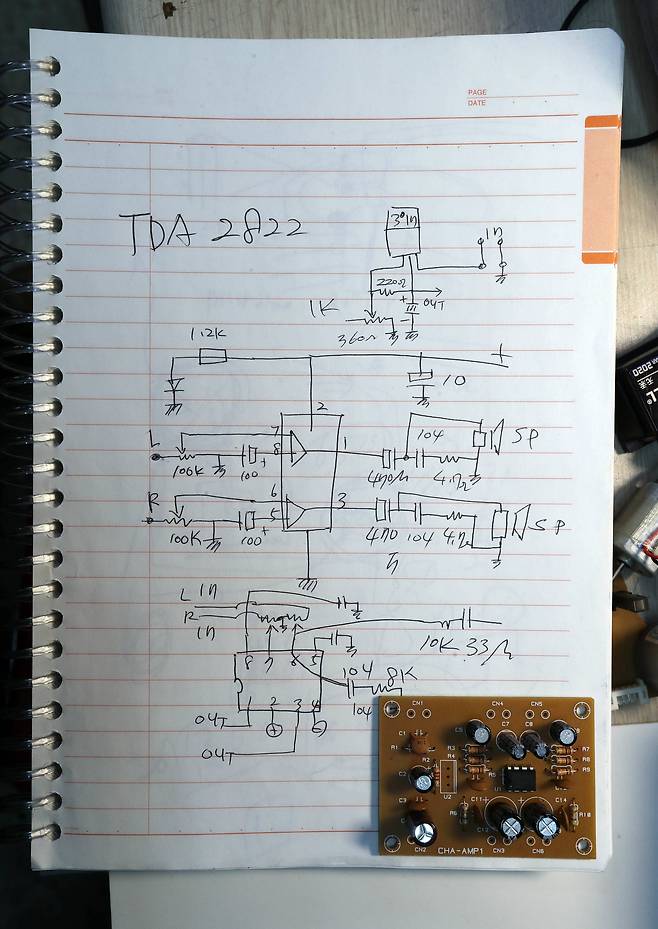 PAGE
DATE
TDA 2822
IN
220Ω
+
OUT
1K
360Ω
1.2K
+
10
2
L
7
8
1
104
SP
100K
100
+
470μ
4.7Ω
R
6
5
3
SP
100K
100
+
470
104
4.7Ω
L IN
R
IN
10K 33μ
8 7 6 5
104 8K
104
1 2 3 4
OUT
OUT
CN1
CN4
CN5
C7
C8
C1
R1
R2
R3
R4
R5
R7
R8
R9
C2
U2
U1
C3
R6
C11
C12
C14
R10
CN2
CHA-AMP1
CN3
CN6
2020